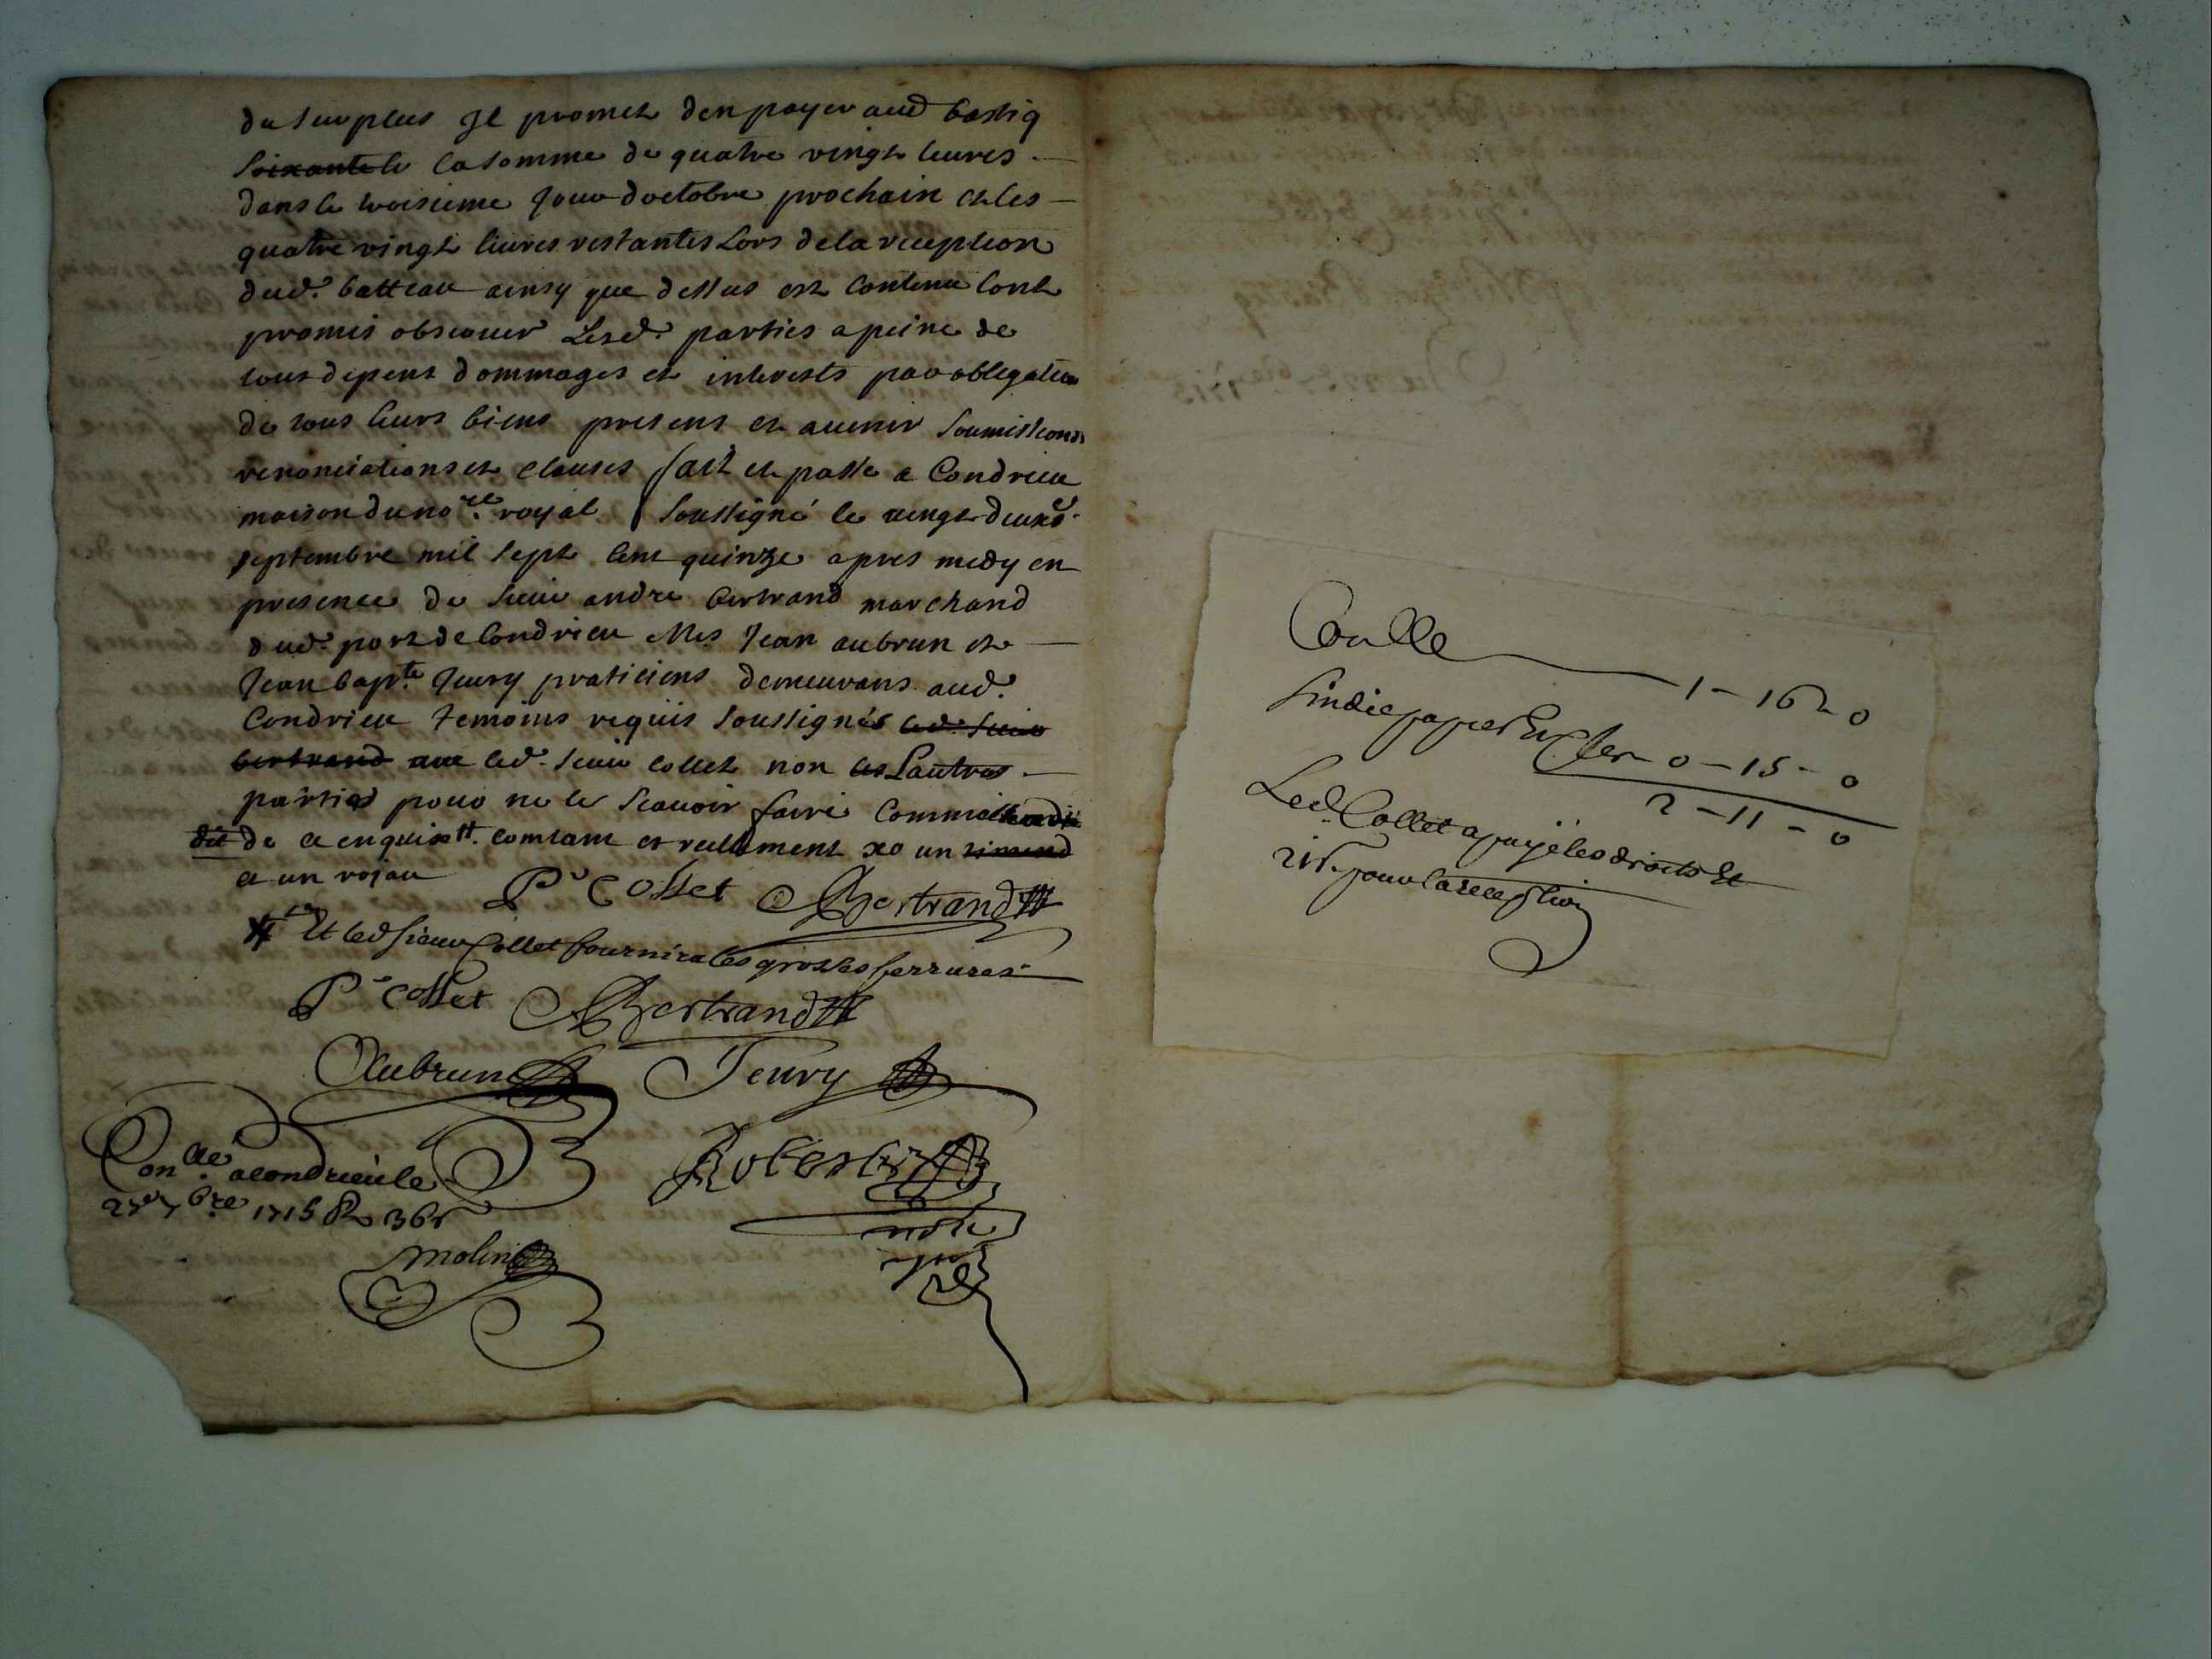 du surplus Il promet d'en payer aud bastiq
soixante li la somme de quatre vingt liures
dans le troisieme jour d'octobre prochain et les
quatre vingt liures restantes Lors de la reception
dud. batteau ainsy que dessus est Contenu Cont
promis obseruer Lesd. parties a peine de
tous depens dommages et interests par obligation
de tous leurs biens presens et auenir soumissions
renonciations et clauses fait et passé a Condrieu
maison du no.re royal soussigné le vingt deuxe.
septembre mil sept cent quinze apres midy en
presence de sieur andre bertrand marchand
dud. port de Condrieu Mes Jean aubrun et
Jean bapte. Jeury praticiens demeurans aud.
Condrieu temoins requis soussignés led. sieur
bertrand aue led. sieur Collet non les Lautres
parties pour ne le scauoir faire Comme
dit de ce enquis tt. comtant et reellement un
et un royau
Pr Collet Bertrand
Et led sieur Collet fournira les grosses ferrures
Pr Collet Bertrand
Aubrun Jeury
Con.lé a Condrieu le
23e 7bre 1715 R 36s
molin
Conlle 1 - 16 - 0
papier Et 0 - 15 - 0
2 - 11 - 0
Led. Collet a payé les droits Et
21s. pour la reception